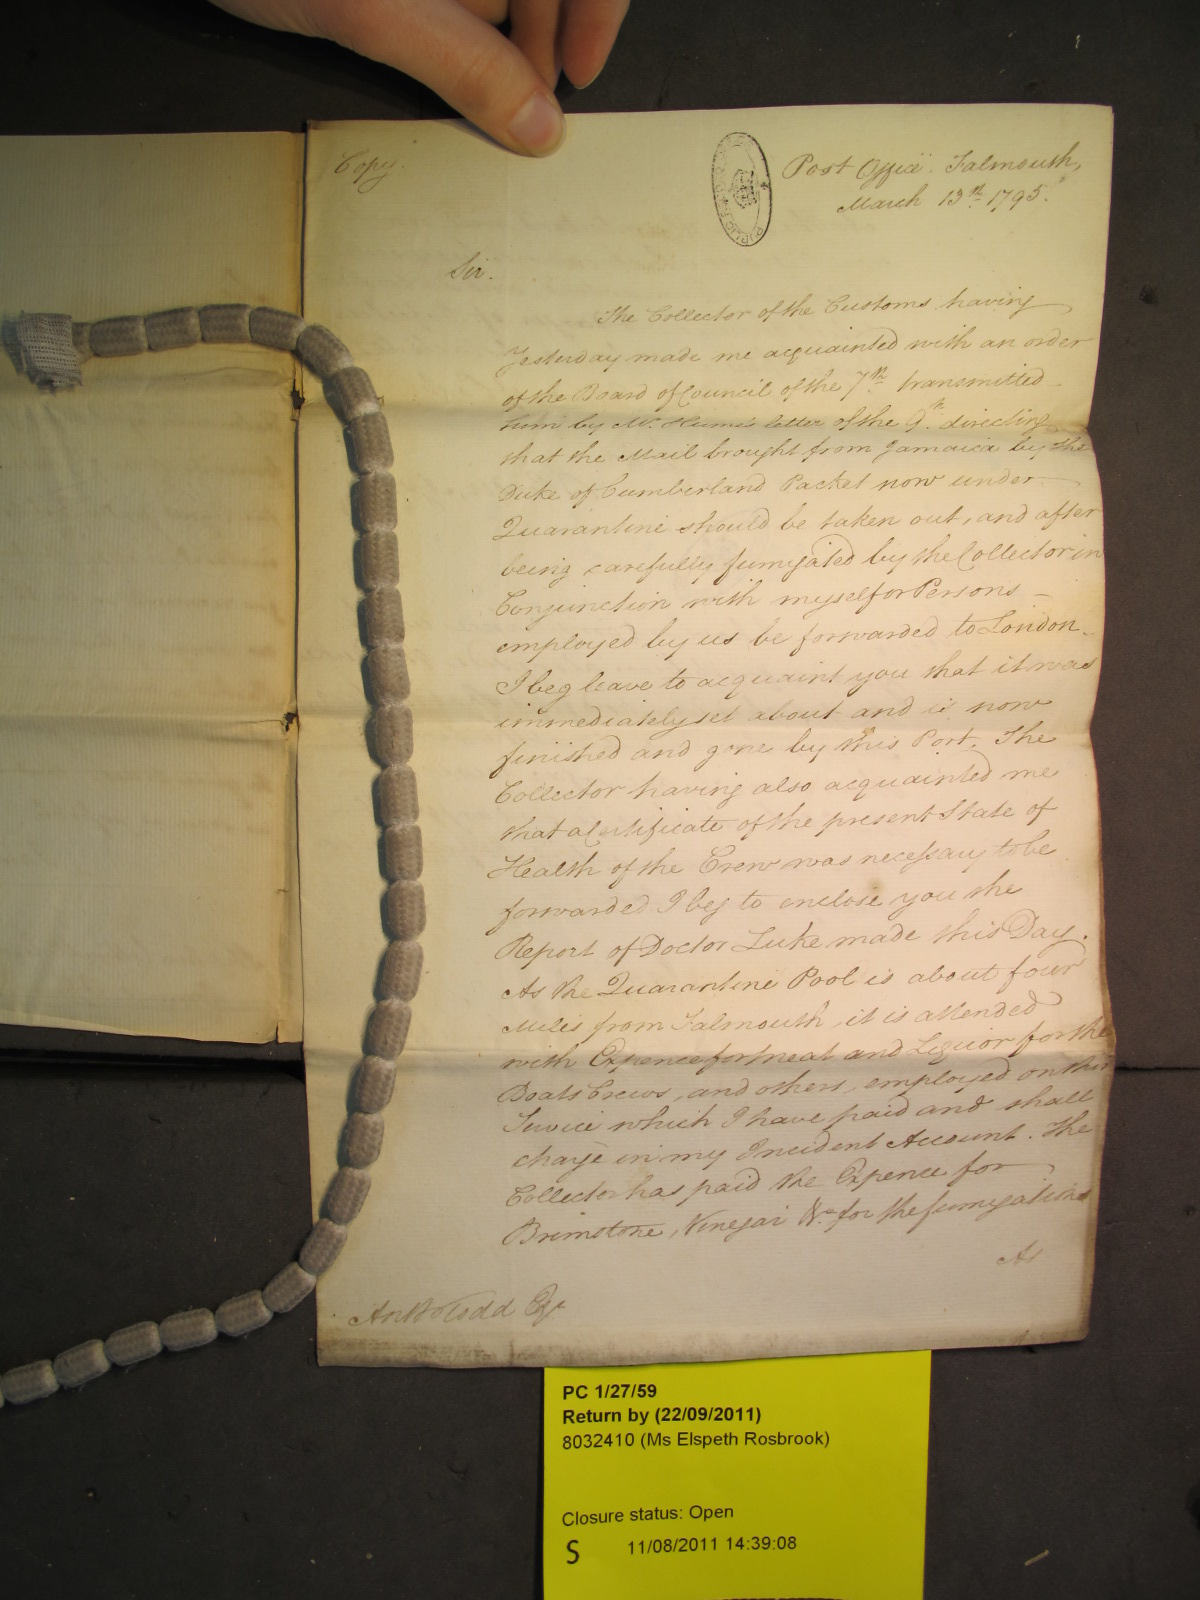 Copy.
Post Office Falmouth,
March 13th 1795.
Sir.
The Collector of the Customs having
Yesterday made me acquainted with an order
of the Board of Council of the 7th transmitted
him by Mr. Hume's letter of the 9th directing
that the Mail brought from Jamaica by the
Duke of Cumberland Packet now under
Quarantine should be taken out, and after
being carefully fumigated by the Collector in
Conjunction with myself or Persons
employed by us be forwarded to London.
I beg leave to acquaint you that it was
immediately set about and is now
finished and gone by this Post. The
Collector having also acquainted me
that a Certificate of the present State of
Health of the Crew was necessary to be
forwarded I beg to enclose you the
Report of Doctor Luke made this Day.
As the Quarantine Pool is about four
Miles from Falmouth, it is attended
with Expence for meat and Liquor for the
Boats Crews, and others, employed on this
Service which I have paid and shall
charge in my Incident Account. The
Collector has paid the Expence for
Brimstone, Vinegar &c. for the fumigations
As
Todd Esqr
PC 1/27/59
Return by (22/09/2011)
8032410 (Ms Elspeth Rosbrook)
Closure status: Open
S 11/08/2011 14:39:08